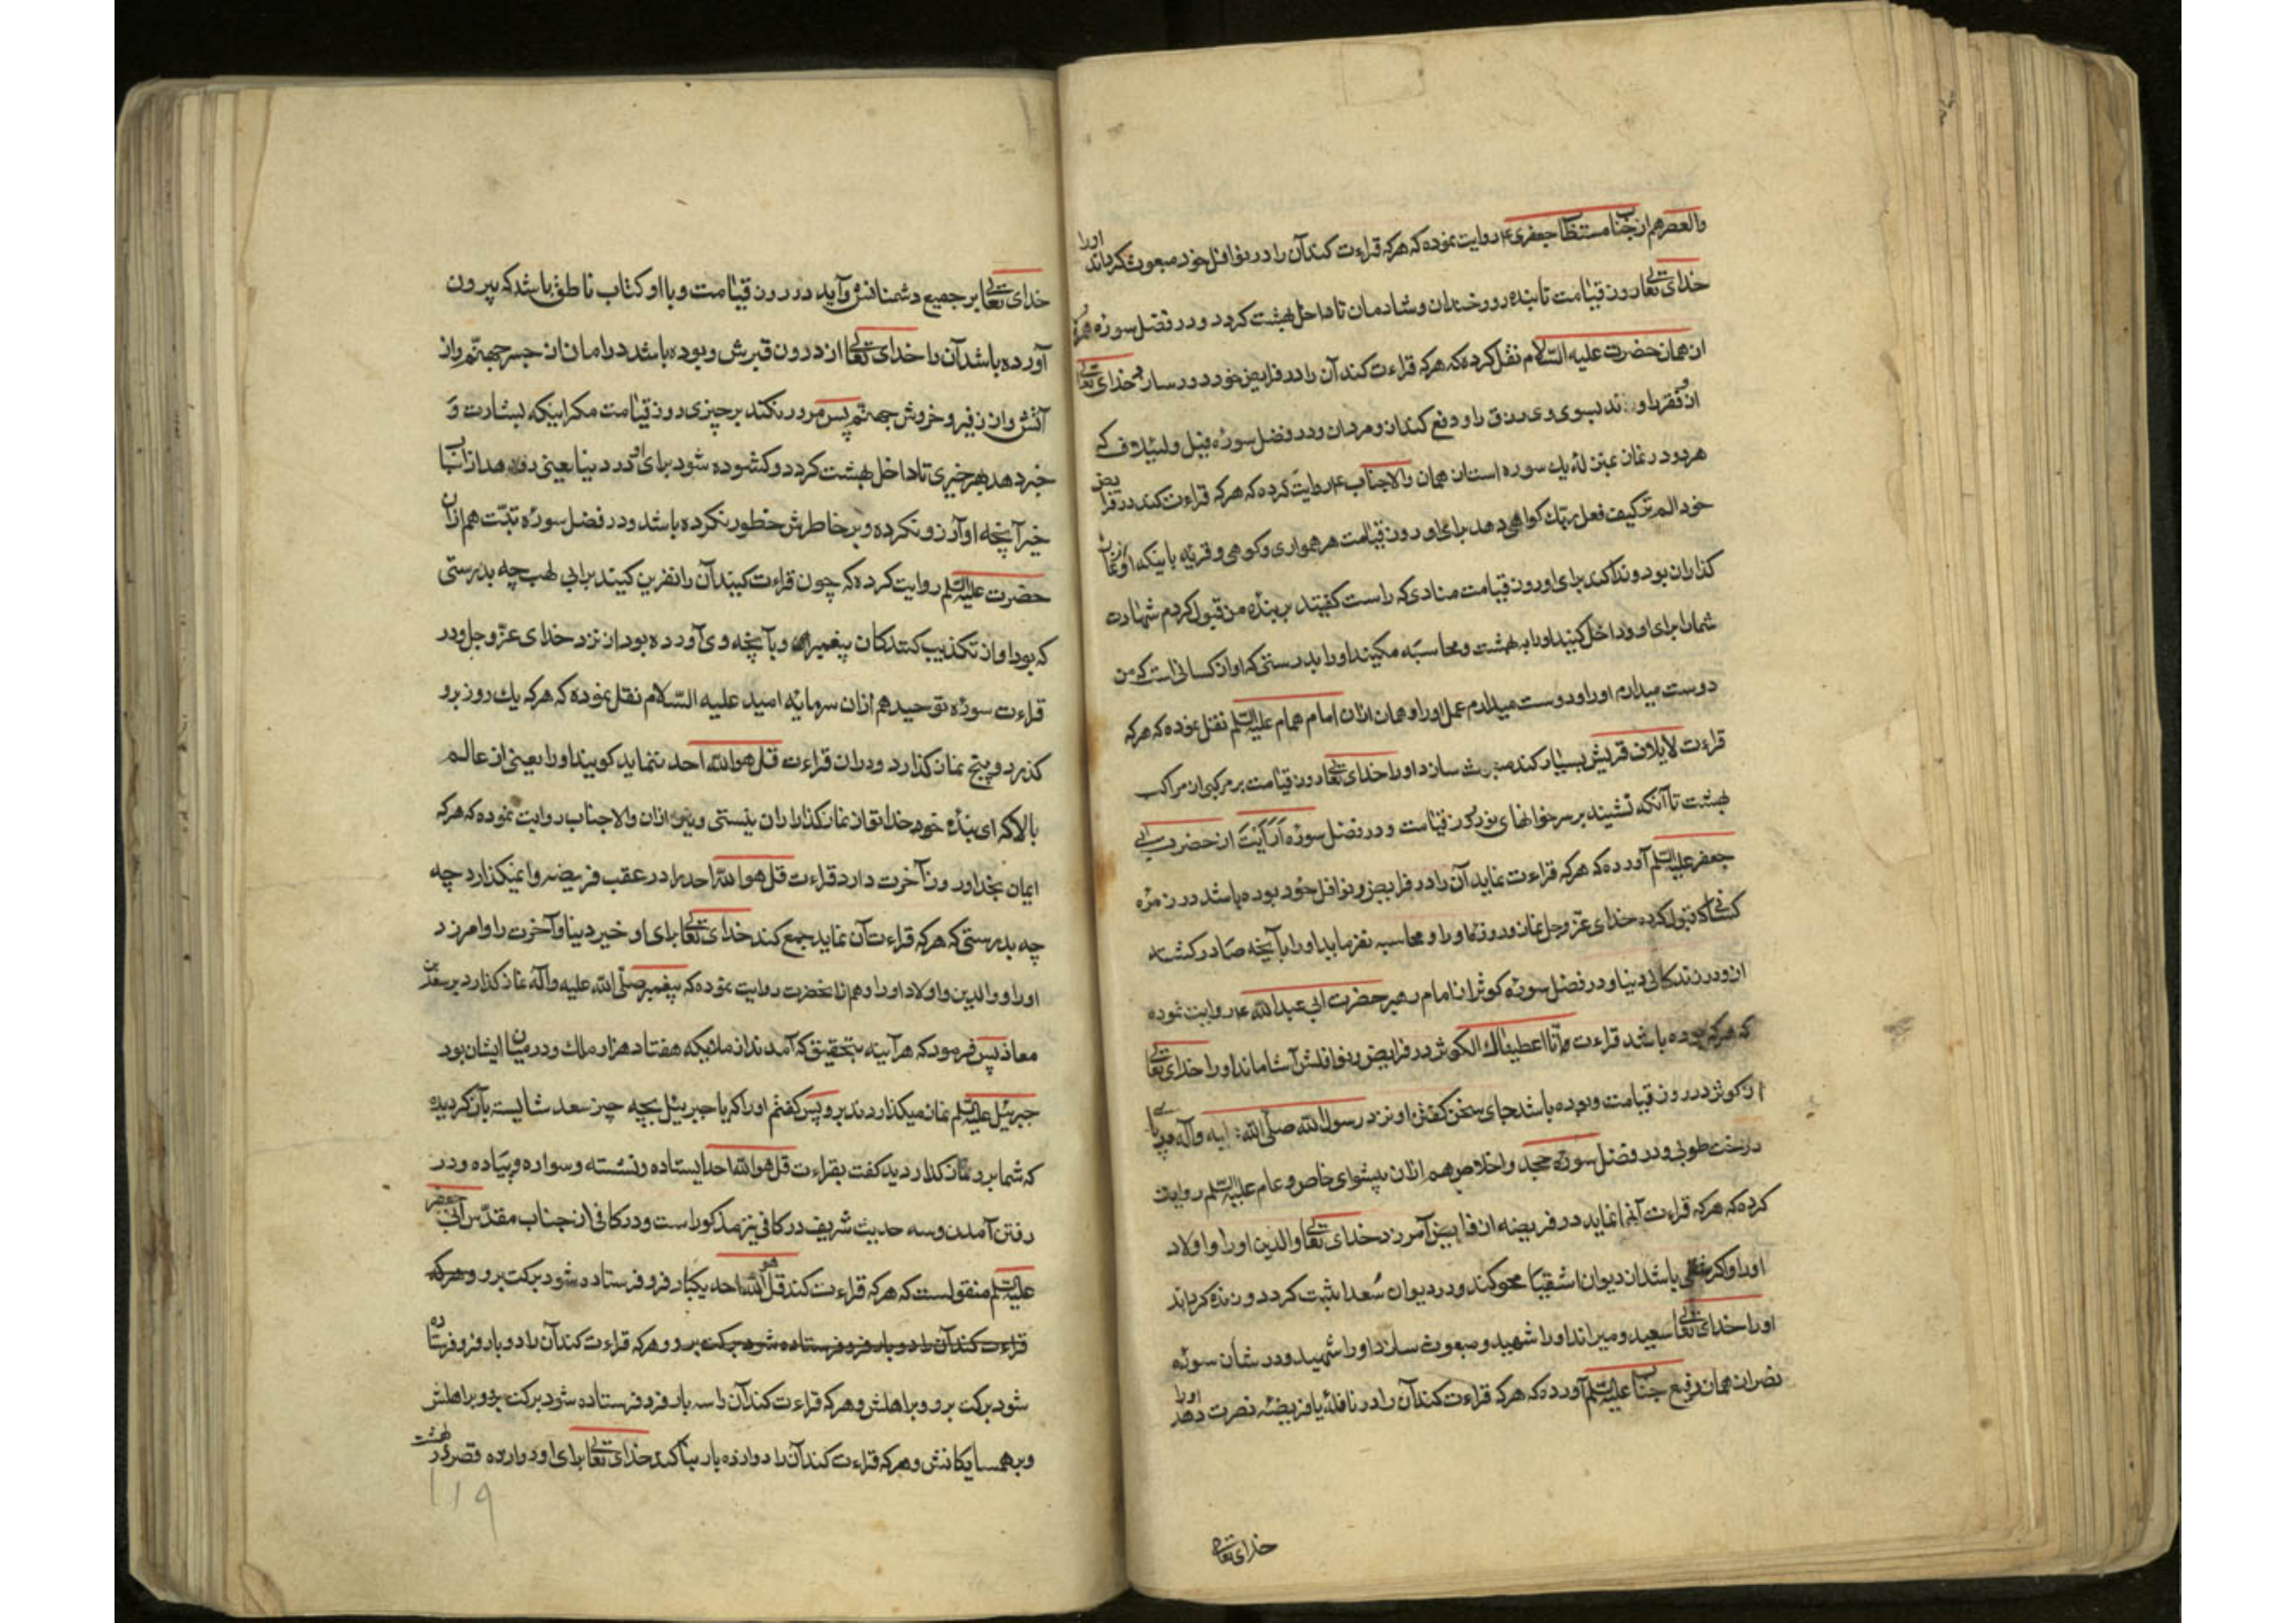 والعصر هم از جناب مستطاب جعفری ع روایت نموده که هرکه قراءت کند آن را در نوافل خود مبعوث کرداند اورا
خدای تعالی روز قیامت تابنده رو و خندان و شادمان تا داخل بهشت کردد و در فضل سوره همزه
از همان حضرت علیه السلام نقل کرده که هرکه قراءت کند آن را در فرایض خود دور سازد خدای تعالی
از وی فقر را و بسوی وی رزق را و دفع کند از و مردن و در فضل سوره فیل و لئیلاف که
هر دو در نماز بمنزلهٔ یك سوره است از همان والاجناب ع روایت کرده که هرکه قراءت کند در فرایض
خود الم تر کیف فعل ربك کواهی دهد برای او روز قیامت هر همواری و کوهی و قریه باینکه او از نماز
کذاران بود و ندا کند برای او روز قیامت منادی که راست کفتید بر بنده من قبول کردم شهادت
شما را برای او و داخل کنید او را به بهشت و محاسبه مکنید او را بدرستی که او از کسانی است که من
دوست میدارم او را و دوست میدارم عمل او را و همان ازان امام همام علیه السلم نقل نموده که هرکه
قراءت لایلاف قریش بسیار کند مبعوث سازد او را خدای تعالی روز قیامت بر مرکبی از مراکب
بهشت تا آنکه نشیند بر سر خوانهای نور روز قیامت و در فضل سوره اَرَاَیْتَ از حضرت ابی
جعفر علیه السلم آورده که هرکه قراءت نماید آن را در فرایض و نوافل خود بوده باشد در زمره
کسانی که قبول کرده خدای عز و جل نماز و روزه او را و محاسبه نفرماید او را بآنچه صادر کشته
از و در زندکانی دنیا و در فضل سوره کوثر از امام رهبر حضرت ابی عبدالله ع روایت نموده
که هرکه بوده باشد قراءت انّا اعطیناك الکوثر در فرایض و نوافلش آشاماند او را خدای تعالی
از کوثر در روز قیامت و بوده باشد جای سخن کفتن او نزد رسول الله صلی الله علیه و آله در پای
درخت طوبی و در فضل سوره جحد و اخلاص هم ازان پیشوای خاص و عام علیه السلم روایت
کرده که هرکه قراءت آنها نماید در فریضه از فرایض آمرزد خدای تعالی والدین او را و اولاد
او را و اکر شقی باشد از دیوان اشقیا محو کند و در دیوان سُعدا ثبت کردد و زنده کرداند
او را خدای تعالی سعید و میراند او را شهید و مبعوث سازد او را شهید و در شان سوره
نصر از همان رفیع جناب علیه السلم آورده که هرکه قراءت کند آن را در نافله یا فریضه نصرت دهد اورا
خدای تعالی
خدای تعالی بر جمیع دشمنانش و آید در روز قیامت و با او کتاب ناطق باشد که بیرون
آورده باشد آن را خدای تعالی از درون قبرش و بوده باشد در امان از جسر جهنم و از
آتش و از زفیر و خروش جهنم پس مرور نکند بر چیزی روز قیامت مکر اینکه بشارت و
خبر دهد بهر خیری تا داخل بهشت کردد و کشوده شود برای او در دنیا یعنی از اسباب
خیر آنچه او آرزو نکرده و بر خاطرش خطور نکرده باشد و در فضل سوره تبّت هم ازان
حضرت علیه السلم روایت کرده که چون قراءت کنید آن را نفرین کنید بر ابی لهب چه بدرستی
که بود او از تکذیب کنندکان پیغمبر و بآنچه وی آورده بود از نزد خدای عز و جل و در
قراءت سوره توحید هم ازان سرمایه امید علیه السّلام نقل نموده که هرکه یك روز برو
کذرد و پنج نماز کذارد و دران قراءت قل هو الله احد ننماید کویند او را یعنی از عالم
بالا که ای بندهٔ خدا تو از نماز کذاران نیستی و نیز ازان والاجناب روایت نموده که هرکه
ایمان بخدا و روز آخرت دارد قراءت قل هو الله احد را در عقب فریضه وا نمیکذارد چه
چه بدرستی که هرکه قراءت آن نماید جمع کند خدای تعالی برای او خیر دنیا و آخرت را و آمرزد
او را و والدین و اولاد او را و هم ازانحضرت روایت نموده که پیغمبر صلی الله علیه و آله نماز کذارد بر سعد بن
معاذ پس فرمود که هر آینه بتحقیق که آمدند از ملایکه هفتاد هزار ملك و در میان ایشان بود
جبرئیل علیه السلم نماز میکذاردند برو پس کفتم او را که یا جبرئیل بچه چیز سعد شایسته بآن کردیده
که شما برو نماز کذاردید کفت بقراءت قل هو الله احد ایستاده و نشسته و سواره و پیاده و در
رفتن آمدن و سه حدیث شریف در کافی نیز مذکور است و در کافی از جناب مقدّس ابی جعفر
علیه السلم منقولست که هرکه قراءت کند قل هو الله احد یکبار فرو فرستاده شود برکت برو و هرکه
قراءت کند آن را دو بار فرو فرستاده شود برکت برو و هرکه قراءت کند آن را دو بار فرو فرستاده
شود برکت برو و بر اهلش و هرکه قراءت کند آن را سه بار فرو فرستاده شود برکت برو و بر اهلش
و بر همسایکانش و هرکه قراءت کند آن را دوازده بار بنا کند خدای تعالی برای او دوازده قصر در بهشت
۱۱۹